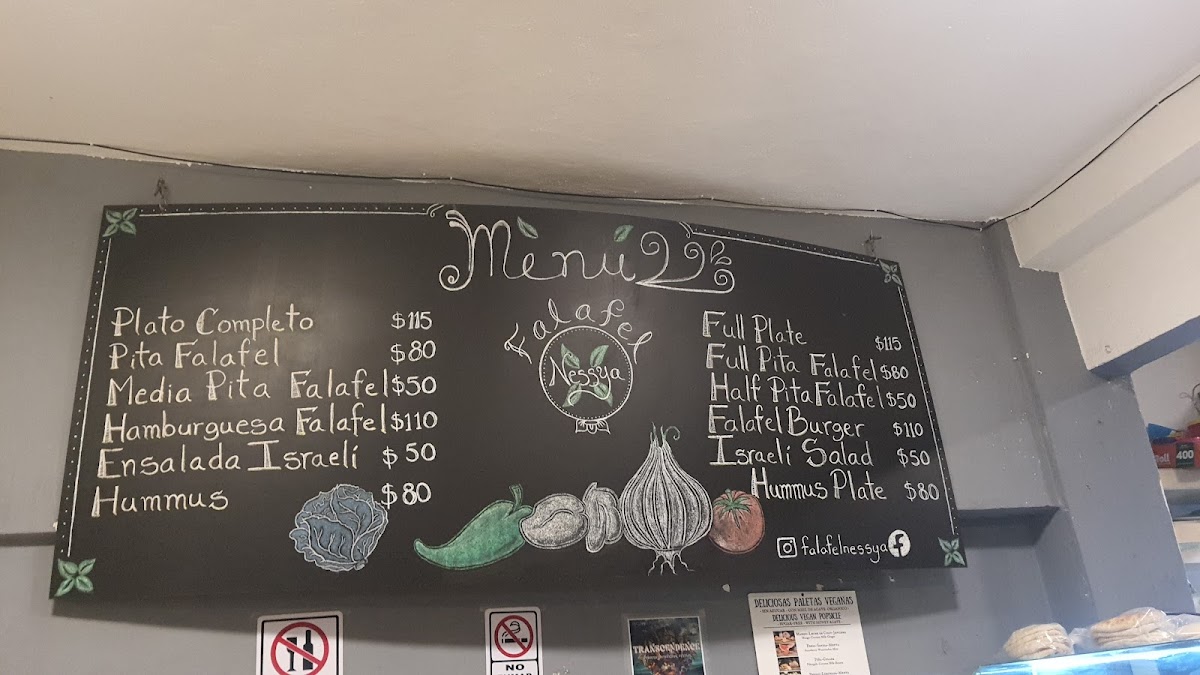 Menú
Falafel
Nessya
Plato Completo $115
Pita Falafel $80
Media Pita Falafel $50
Hamburguesa Falafel $110
Ensalada Israelí $50
Hummus $80
Full Plate $115
Full Pita Falafel $80
Half Pita Falafel $50
Falafel Burger $110
Israelí Salad $50
Hummus Plate $80
falafelnessya f
NO
TRANSCENDENCE
DELICIOSAS PALETAS VEGANAS
DELICIOUS VEGAN POPSICLE
400